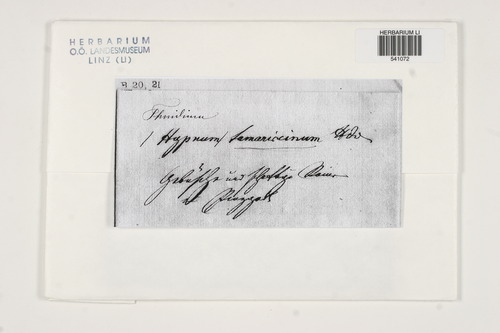 HERBARIUM
O.Ö. LANDESMUSEUM
LINZ (LI)
HERBARIUM LI
541072
B 20, 21
Thuidium
/ Hypnum tamariscinum Hdw
Gebüsche und